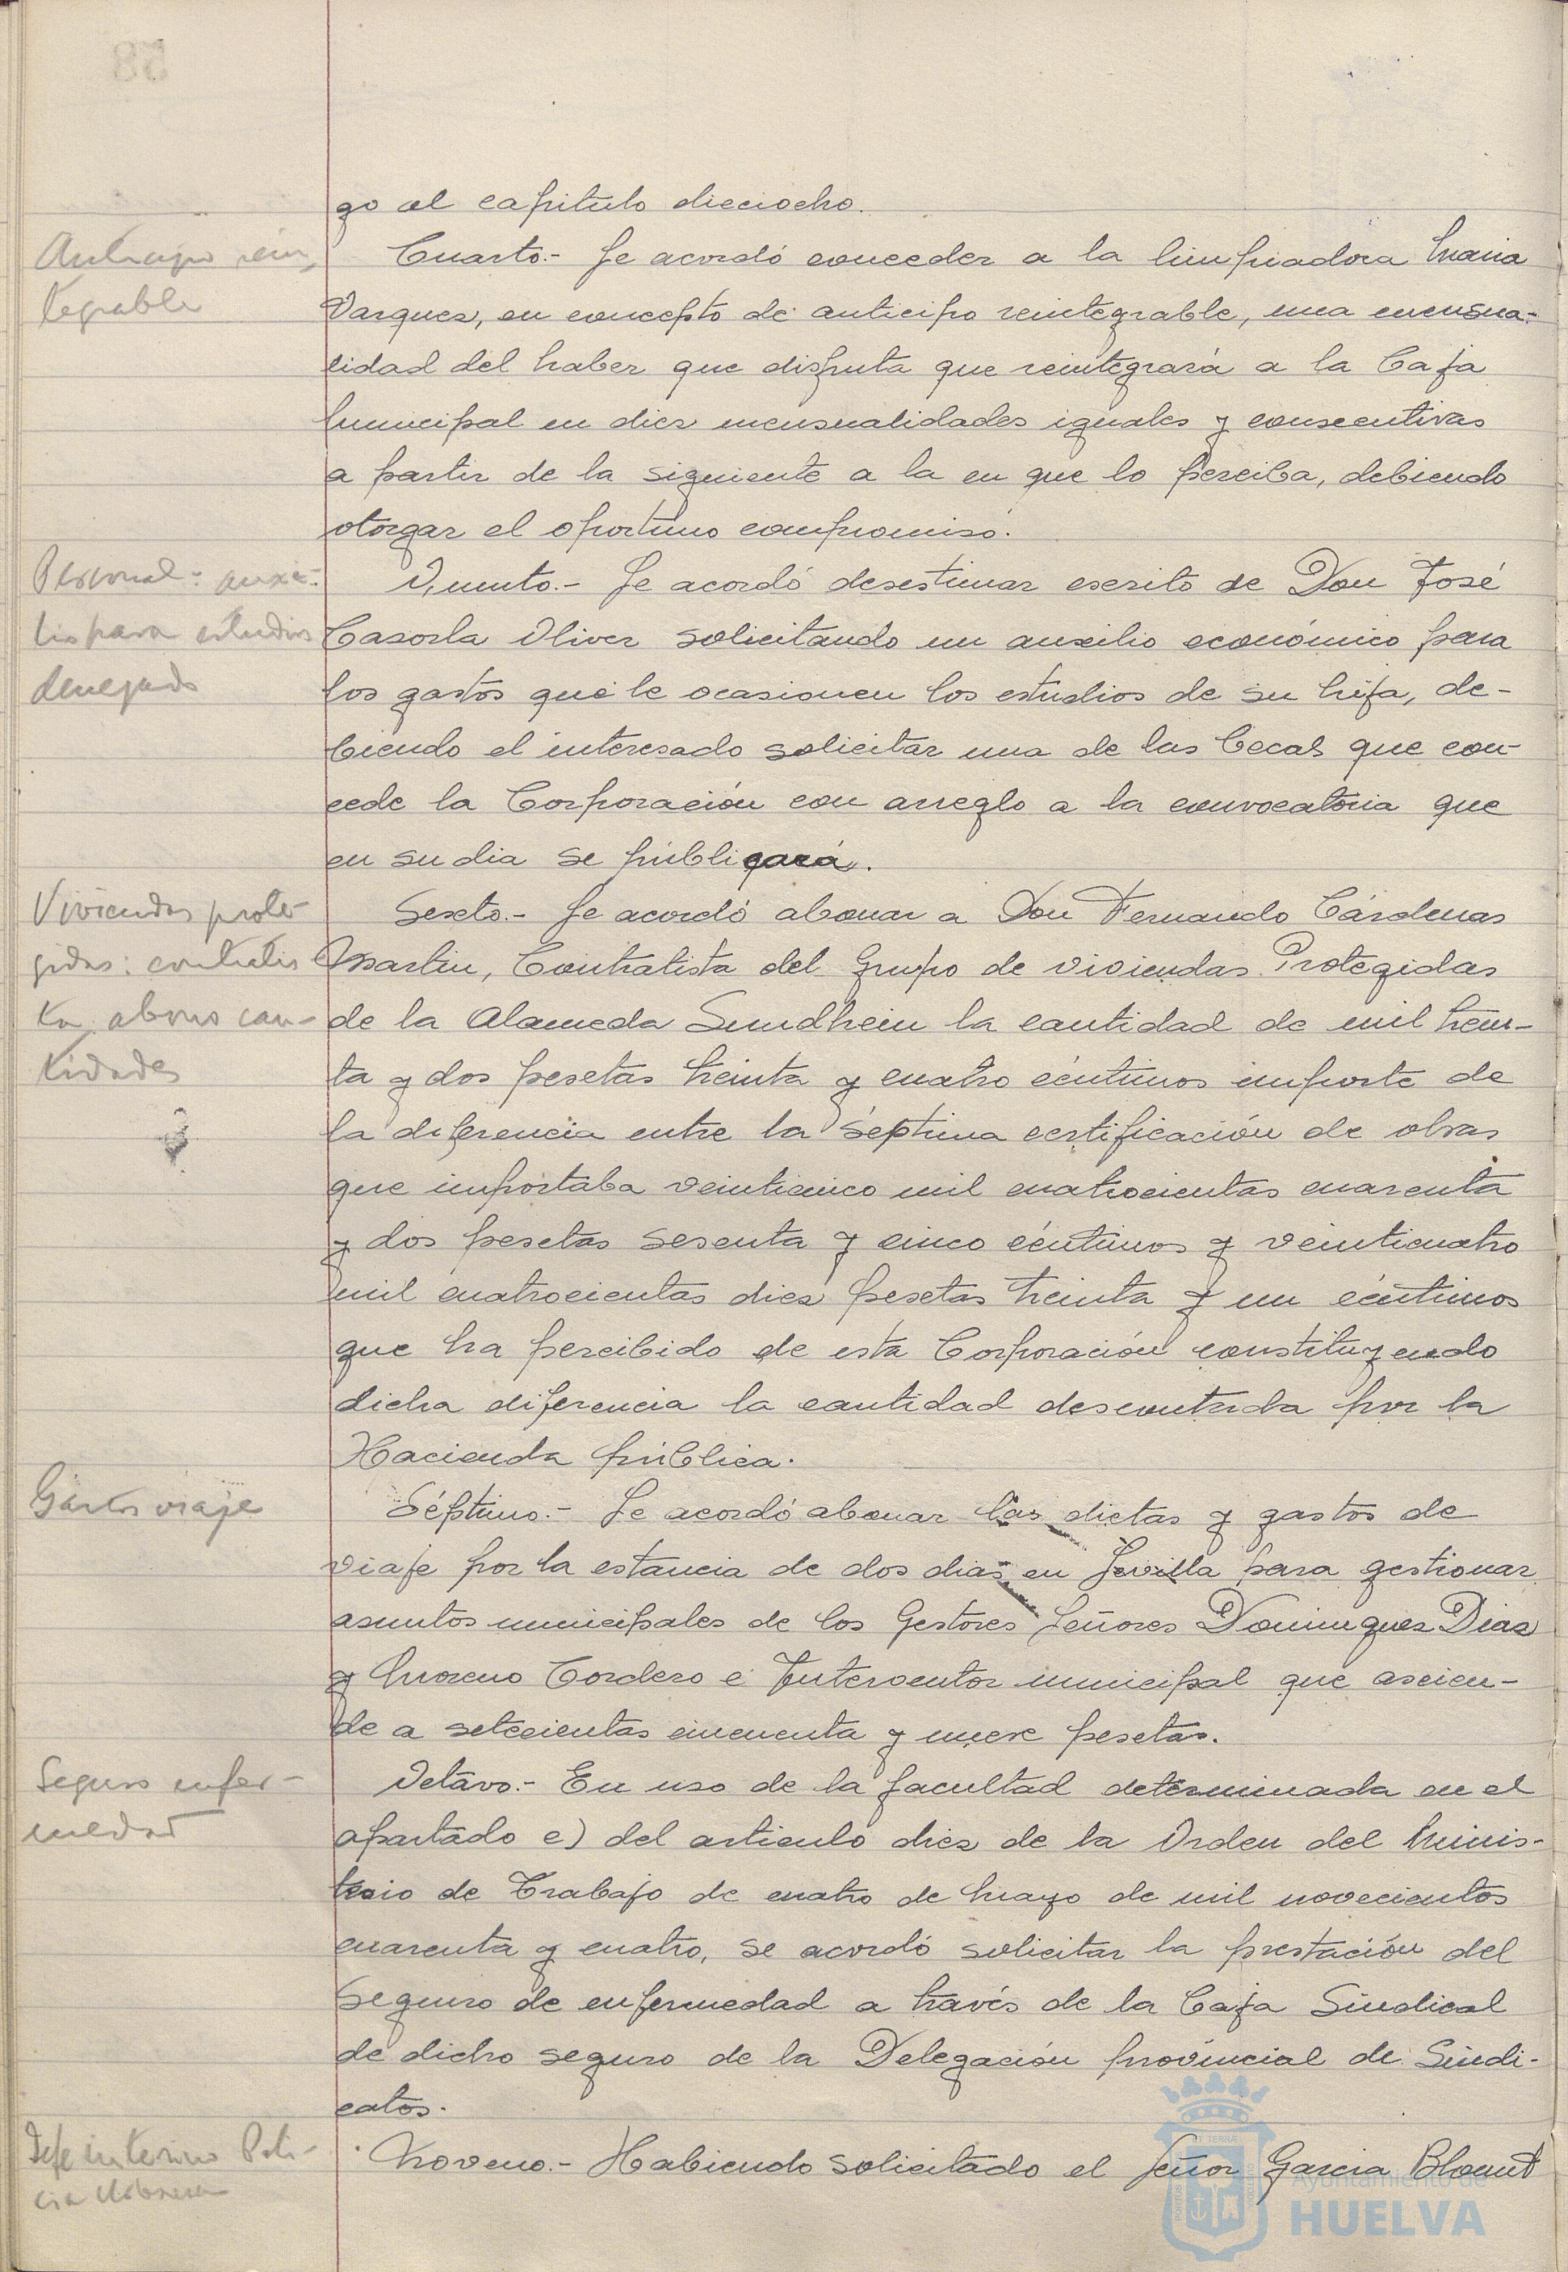 go al capitulo dieciocho.
Anticipo rein,
tegrable
Cuarto.- Se acordó conceder a la limpiadora Maria
Vazquez, en concepto de anticipo reintegrable, una mensua-
lidad del haber que disfruta que reintegrará a la Caja
Municipal en diez mensualidades iguales y consecutivas
a partir de la siguiente a la en que lo perciba, debiendo
otorgar el oportuno compromiso.
Personal: auxi-
lio para estudios
denegado
Quinto.- Se acordó desestimar escrito de Don José
Casorla Oliver solicitando un auxilio económico para
los gastos que le ocasionen los estudios de su hija, de-
biendo el interesado solicitar una de las becas que con-
cede la Corporación con arreglo a la convocatoria que
en su dia se publicará.
Viviendas prote-
gidas: contratis
ta, abono can-
tidades
Sexto.- Se acordó abonar a Don Fernando Cárdenas
Martin, Contratista del Grupo de viviendas Protegidas
de la Alameda Sundhein la cantidad de mil trein-
ta y dos pesetas treinta y cuatro céntimos importe de
la diferencia entre la séptima certificación de obras
que importaba veinticinco mil cuatrocientas cuarenta
y dos pesetas sesenta y cinco céntimos y veinticuatro
mil cuatrocientas diez pesetas treinta y un céntimos
que ha percibido de esta Corporación constituyendo
dicha diferencia la cantidad descontada por la
Hacienda pública.
Gastos viaje
Séptimo.- Se acordó abonar las dietas y gastos de
viaje por la estancia de dos dias en Sevilla para gestionar
asuntos municipales de los Gestores Señores Dominguez Diaz
y Moreno Cordero e Interventor municipal que ascien-
de a setecientas cincuenta y nueve pesetas.
Seguro enfer-
medad
Octavo.- En uso de la facultad determinada en el
apartado e) del articulo diez de la Orden del Minis-
terio de Trabajo de cuatro de Mayo de mil novecientos
cuarenta y cuatro, se acordó solicitar la prestación del
Seguro de enfermedad a través de la Caja Sindical
de dicho seguro de la Delegación provincial de Sindi-
catos.
Jefe interino Poli-
cia Urbana
Noveno.- Habiendo solicitado el Señor Garcia Blount
Ayuntamiento de
HUELVA